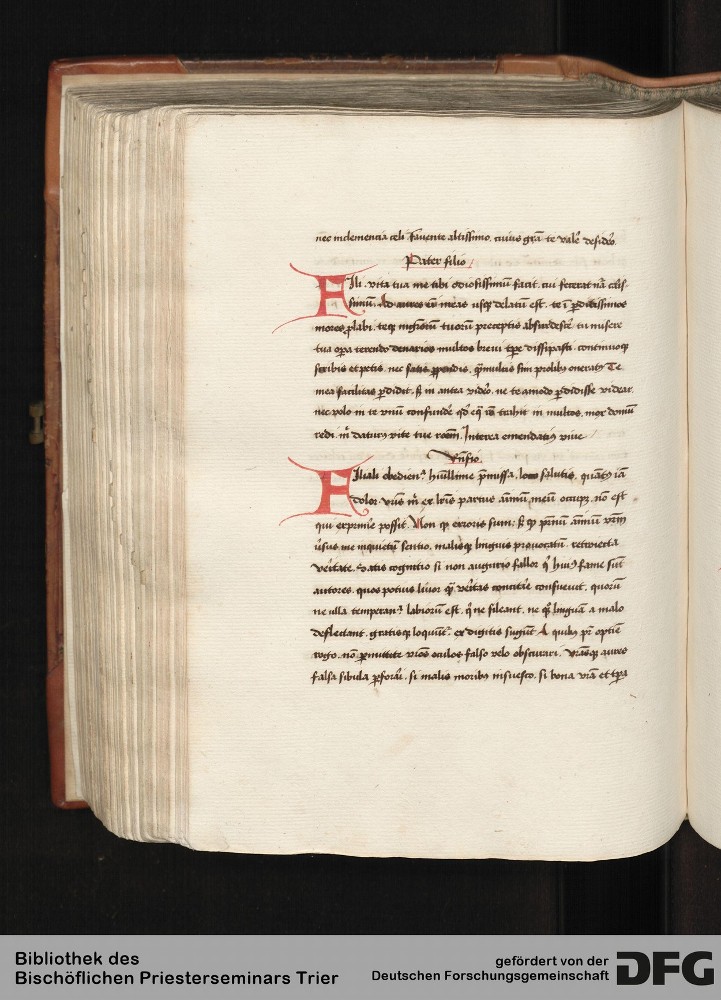 nec inclemencia celi. favente altissimo. cuius grā te valē desidͦo
Pater filio
Fili. vita tua me tibi odiosissimū facit. cui fecerat nā caris-
simū. Ad aures em̄ meas usqȝ delatum est. te ī perditissimos
mores plabi. teqȝ tuorū preceptis tu misere
tua opa terendo denarios multos brevi tpe dissipasti. continuoqȝ
scribis et petis. nec satis ppendis. qmultis sim prolibȝ oneratȝ Te
mea facilitas pdidit. sȝ in antea videro. ne te amodo pdidisse videar
nec volo in te unū confundē qd̄ trahit in multos. mox domū
redi. mͥ daturȝ vite tue rōem. Interea emendatiȝ vive
Rn̄sio.
Filiali obedienᵃ. hūillime p̄missa. loco salutis. quātȝ iā
dolor. ex lrīs partus aīmū meū occupȝ. nō est
qui exprimē possit. Non qȝ erroris sum: sȝ qȝ aīmū vrm̄
me inquietū sentio. malisqȝ linguis provocatū. retroiecta
veritate. cognitio si non augurio fallor qͥ huiȝ fame sūt
autores. quos potius livor quā veritas concitare consuevit. quorū
ne ulla temperanᵃ labiorum est. qͥ ne sileant. ne linguā a malo
deflectant. gratisqȝ loquūtᵣ. ex digitis sugūt A quibȝ pr̄ optīe
rogo. nō permittite vros oculos falso velo obscurari. vrasqȝ aures
falsa fibula pforari. si malis moribȝ insuesco. si bona vrā et tpa
Bibliothek des
Bischöflichen Priesterseminars Trier
gefördert von der
Deutschen Forschungsgemeinschaft
DFG